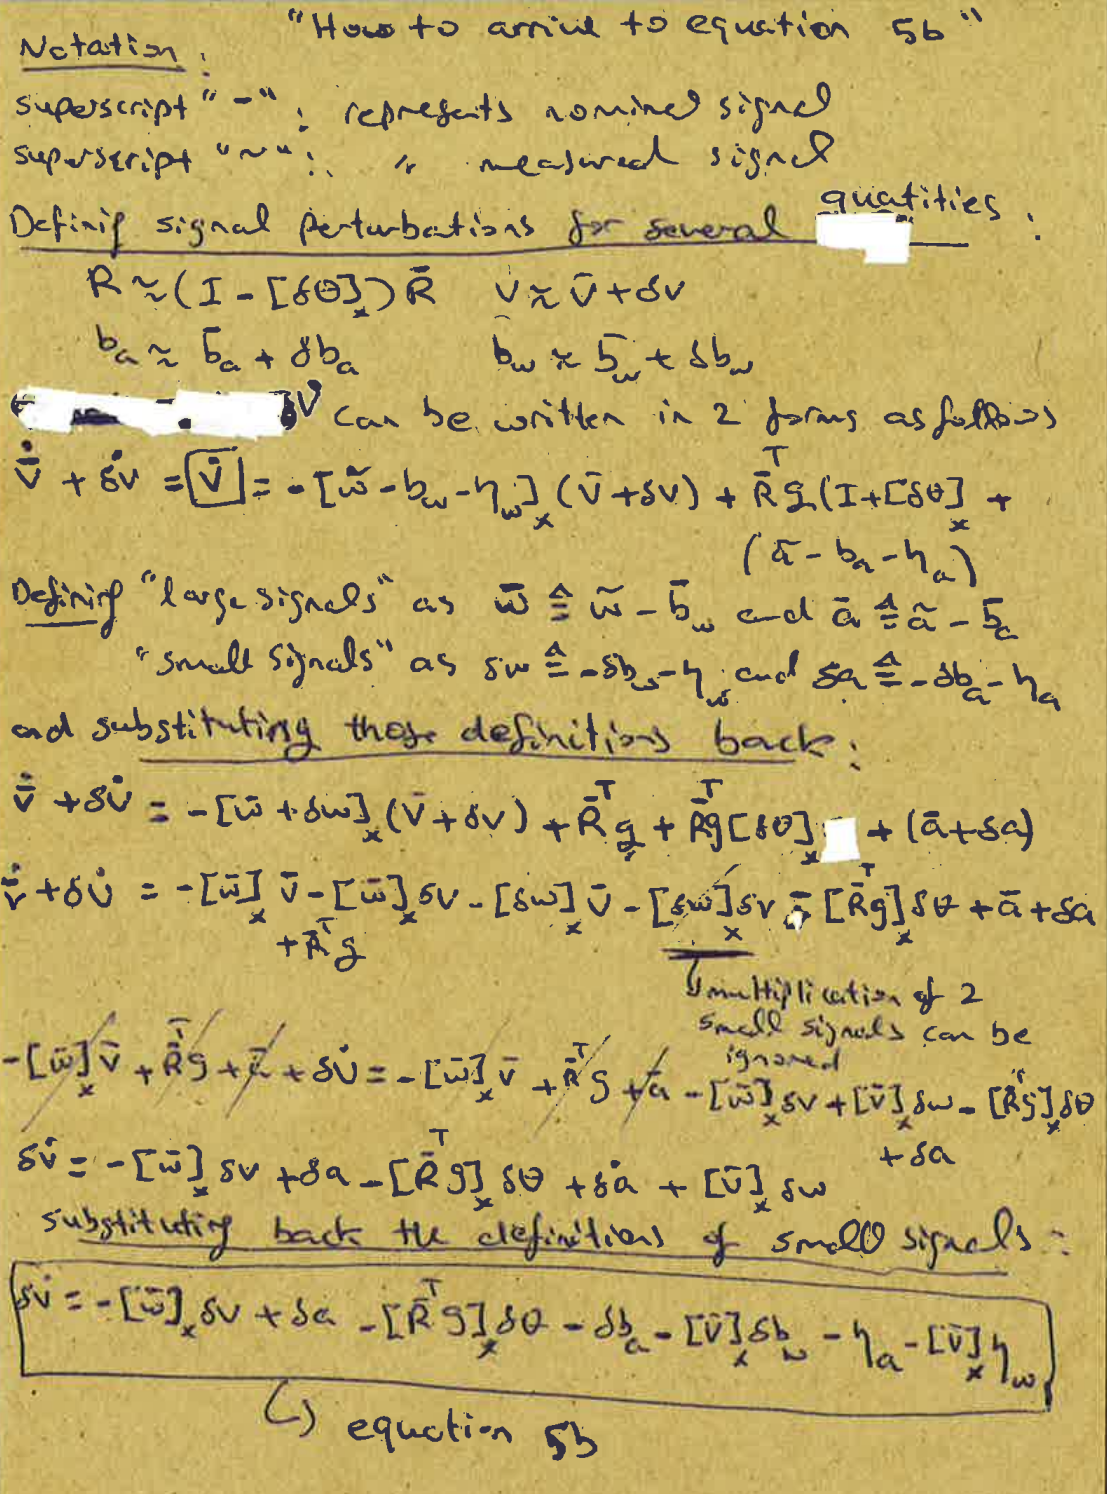 "How to arrive to equation 5b"
Notation:
superscript "-": represents nominal signal
superscript "~": " measured signal
Defining signal perturbations for several quatities:
R ≈ (I - [δθ]ₓ) R̄   v ≈ v̄ + δv
b_a ≈ b̄_a + δb_a   b_w ≈ b̄_w + δb_w
v̇ can be written in 2 forms as follows
v̄̇ + δv̇ = v̇ = -[w̃ - b_w - η_w]ₓ (v̄ + δv) + R̄ᵀ g (I + [δθ]ₓ +
(ã - b_a - η_a)
Defining "large signals" as w̄ ≜ w̃ - b̄_w and ā ≜ ã - b̄_a
"small signals" as δw ≜ -δb_w - η_w and δa ≜ -δb_a - η_a
and substituting those definitions back:
v̄̇ + δv̇ = -[w̄ + δw]ₓ (v̄ + δv) + R̄ᵀ g + R̄ᵀ g [δθ]ₓ + (ā + δa)
v̄̇ + δv̇ = -[w̄]ₓ v̄ - [w̄]ₓ δv - [δw]ₓ v̄ - [δw]ₓ δv - [R̄ᵀ g]ₓ δθ + ā + δa
+ R̄ᵀ g
multiplication of 2
small signals can be
ignored
-[w̄]ₓ v̄ + R̄ᵀ g + ā + δv̇ = -[w̄]ₓ v̄ + R̄ᵀ g + ā - [w̄]ₓ δv + [v̄]ₓ δw - [R̄ᵀ g]ₓ δθ
+ δa
δv̇ = -[w̄]ₓ δv + δa - [R̄ᵀ g]ₓ δθ + δȧ + [v̄]ₓ δw
substituting back the definitions of small signals:
δv̇ = -[w̄]ₓ δv + δa - [R̄ᵀ g]ₓ δθ - δb_a - [v̄]ₓ δb_w - η_a - [v̄]ₓ η_w
↳ equation 5b